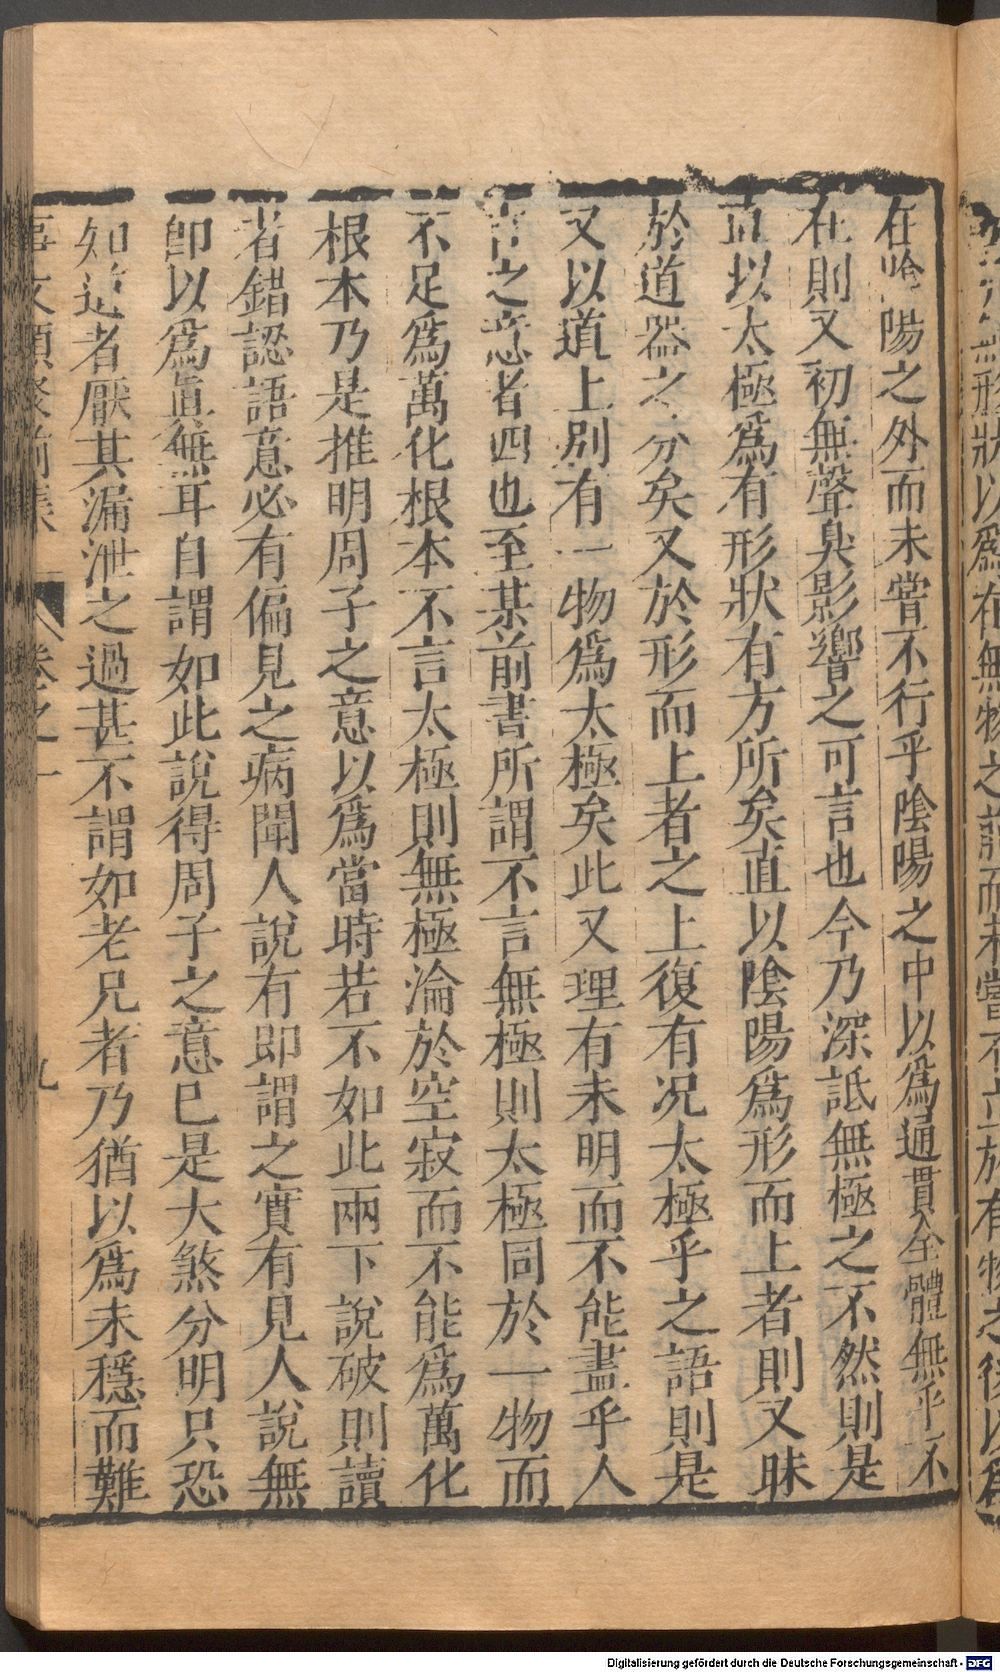 無形狀以爲在無物之前而未嘗不立於有物之後以爲
在陰陽之外而未嘗不行乎陰陽之中以爲通貫全體無乎不
在則又初無聲臭影響之可言也今乃深詆無極之不然則是
直以太極爲有形狀有方所矣直以陰陽爲形而上者則又昧
於道器之分矣又於形而上者之上復有况太極乎之語則是
又以道上別有一物爲太極矣此又理有未明而不能盡乎人
言之意者四也至某前書所謂不言無極則太極同於一物而
不足爲萬化根本不言太極則無極淪於空寂而不能爲萬化
根本乃是推明周子之意以爲當時若不如此兩下說破則讀
者錯認語意必有偏見之病聞人說有即謂之實有見人說無
即以爲眞無耳自謂如此說得周子之意已是大煞分明只恐
知道者厭其漏泄之過甚不謂如老兄者乃猶以爲未穩而難
事文類聚前集 卷之一 九
Digitalisierung gefördert durch die Deutsche Forschungsgemeinschaft - DFG